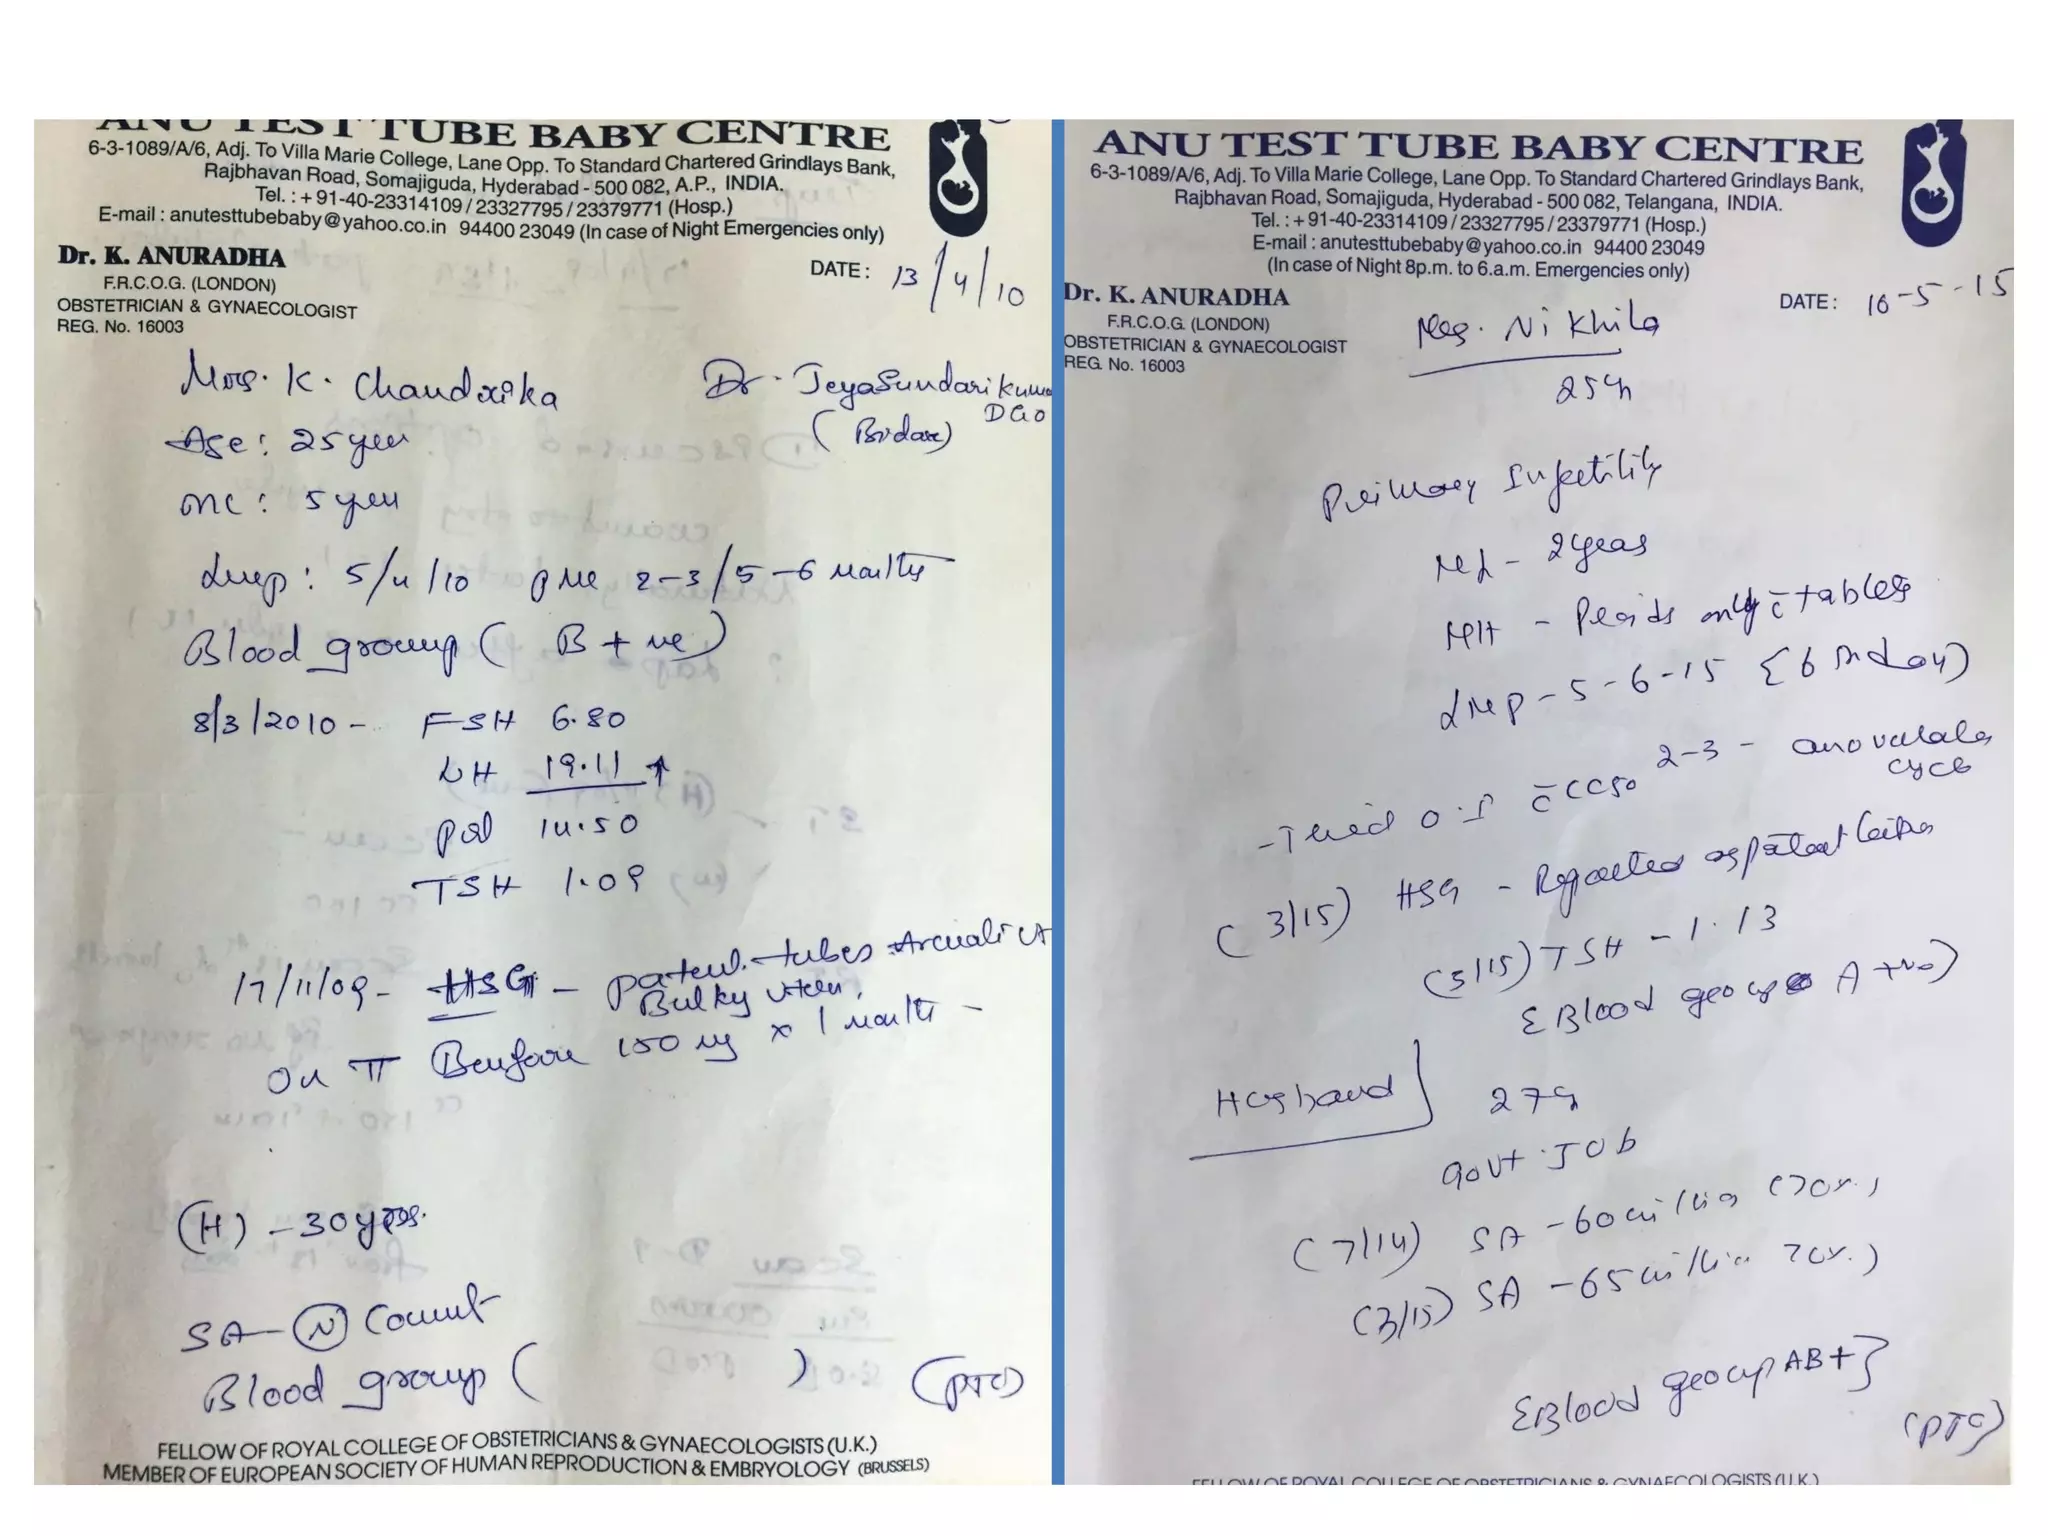 ANU TEST TUBE BABY CENTRE
6-3-1089/A/6, Adj. To Villa Marie College, Lane Opp. To Standard Chartered Grindlays Bank,
Rajbhavan Road, Somajiguda, Hyderabad - 500 082, A.P., INDIA.
Tel. : + 91-40-23314109 / 23327795 / 23379771 (Hosp.)
E-mail : anutesttubebaby@yahoo.co.in 94400 23049 (In case of Night Emergencies only)
Dr. K. ANURADHA
F.R.C.O.G. (LONDON)
OBSTETRICIAN & GYNAECOLOGIST
REG. No. 16003
DATE : 13/4/10
Mrs. K. Chandrika
Dr. JeyaSundari Kuma
DGO
(Bidar)
Age : 25 year
ML : 5 year
Lmp : 5/4/10 PMC 2-3/5-6 months
Blood group ( B + ve )
8/3/2010 - FSH 6.80
LH 19.11 ↑
Prl 14.50
TSH 1.09
17/11/09 - HSG - patent tubes
Bulky uterus,
On 150 mg x 1 month -
(H) - 30 yrs.
SA - (N) Count
Blood group ( )
(PTO)
FELLOW OF ROYAL COLLEGE OF OBSTETRICIANS & GYNAECOLOGISTS (U.K.)
MEMBER OF EUROPEAN SOCIETY OF HUMAN REPRODUCTION & EMBRYOLOGY (BRUSSELS)
ANU TEST TUBE BABY CENTRE
6-3-1089/A/6, Adj. To Villa Marie College, Lane Opp. To Standard Chartered Grindlays Bank,
Rajbhavan Road, Somajiguda, Hyderabad - 500 082, Telangana, INDIA.
Tel. : + 91-40-23314109 / 23327795 / 23379771 (Hosp.)
E-mail : anutesttubebaby@yahoo.co.in 94400 23049
(In case of Night 8p.m. to 6.a.m. Emergencies only)
Dr. K. ANURADHA
F.R.C.O.G. (LONDON)
OBSTETRICIAN & GYNAECOLOGIST
REG. No. 16003
DATE : 16-5-15
Mrs. Nikhila
25y
Primary Infertility
ML - 2 years
MH - Periods only c̄ tablets
LMP - 5-6-15 {6th day}
- Tried O.I c̄ CC50 2-3 - anovulatory
cycle
(3/15) HSG - Reported as patent tubes
(3/15) TSH - 1.13
{Blood group A +ve)
Husband} 27y
Govt. Job
(7/14) SA - 60 million (70%)
(3/15) SA - 65 million 70%)
{Blood group AB+}
(PTO)
FELLOW OF ROYAL COLLEGE OF OBSTETRICIANS & GYNAECOLOGISTS (U.K.)